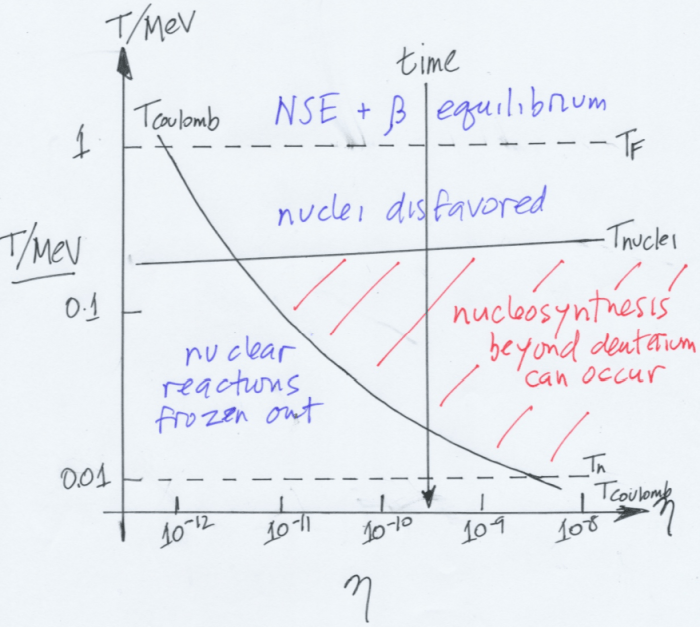 T/MeV
time
NSE + β equilibrium
TCoulomb
1
TF
nuclei disfavored
T/MeV
Tnuclei
0.1
nucleosynthesis
beyond deuterium
can occur
nuclear
reactions
frozen out
0.01
Tn
TCoulomb
η
10⁻¹²
10⁻¹¹
10⁻¹⁰
10⁻⁹
10⁻⁸
η